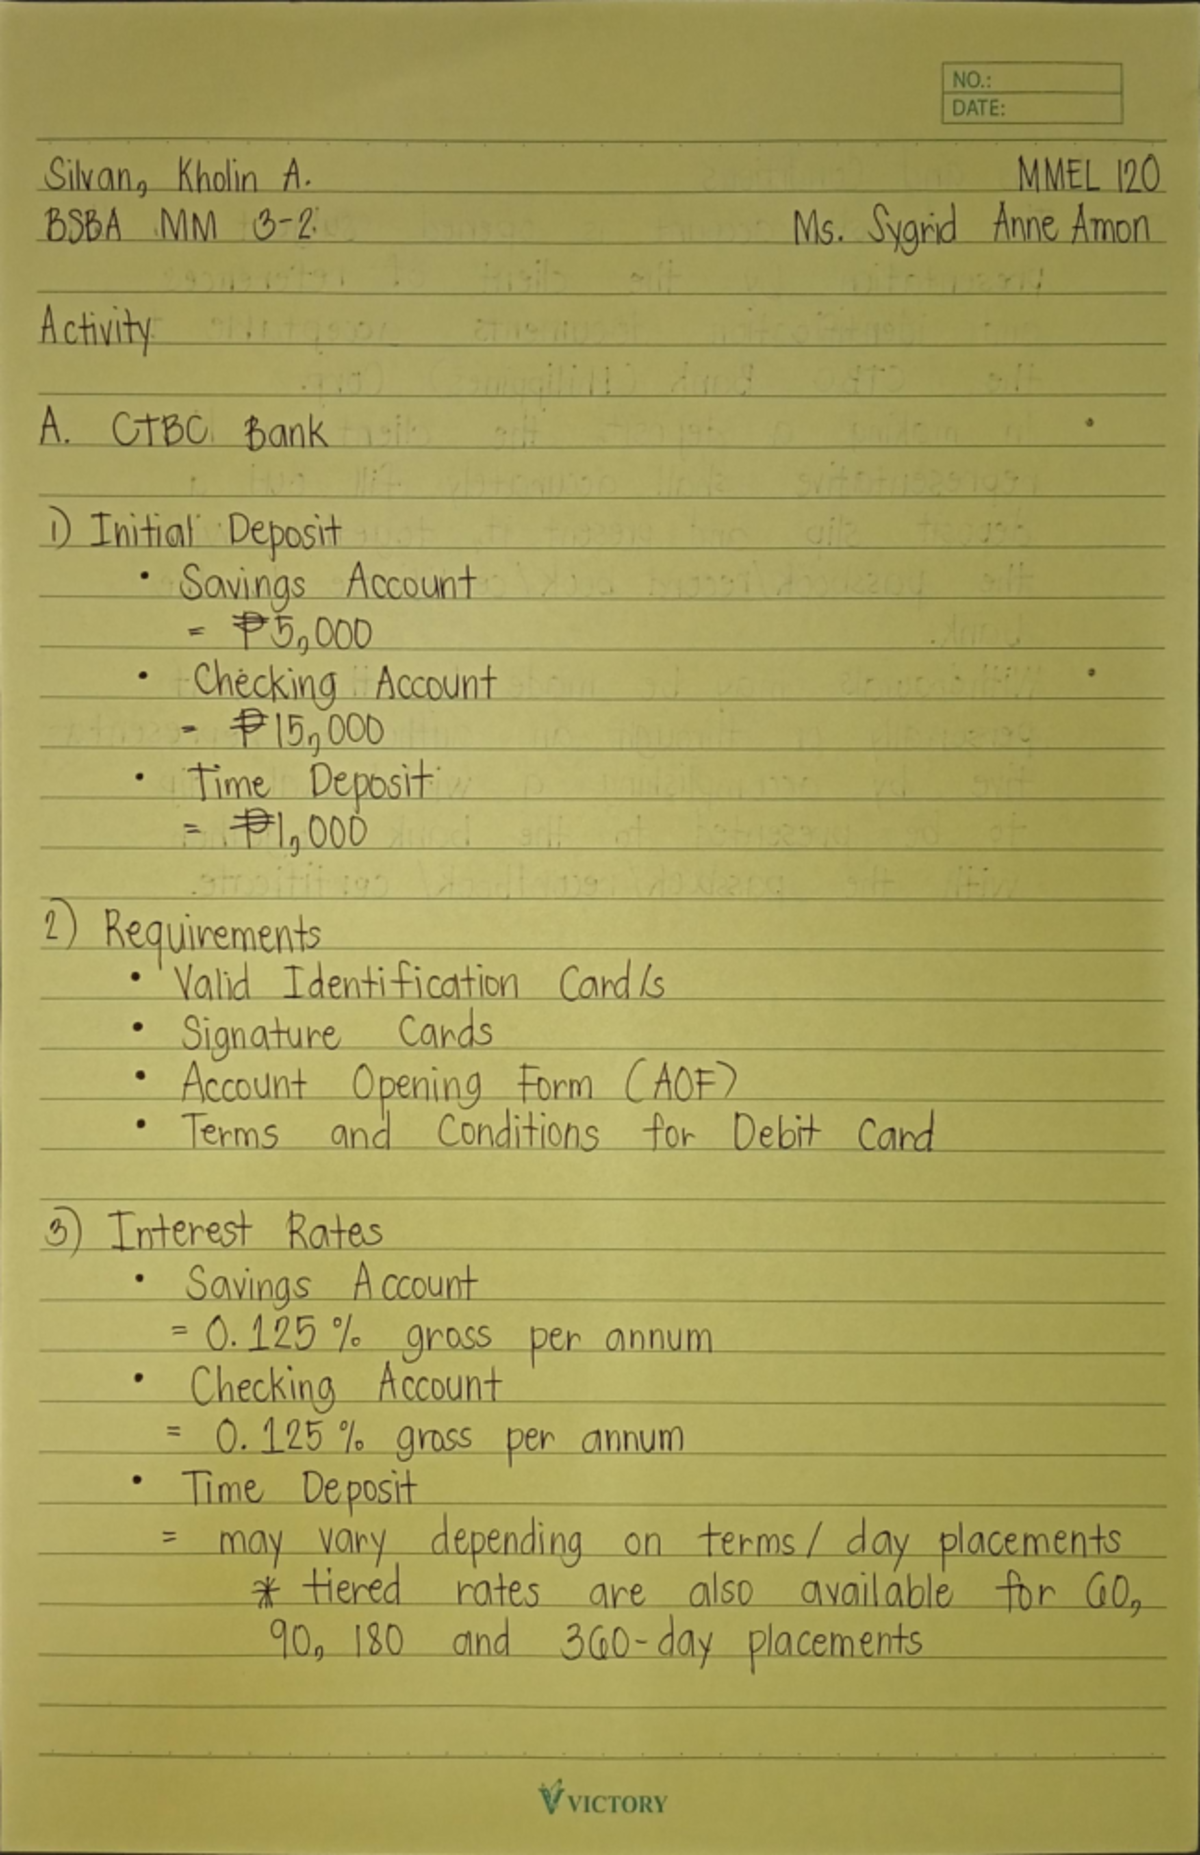 NO.:
DATE:
Silvan, Kholin A. MMEL 120
BSBA MM 3-2 Ms. Sygrid Anne Amon
Activity
A. CTBC Bank
1) Initial Deposit
• Savings Account
= ₱5,000
• Checking Account
= ₱15,000
• Time Deposit
= ₱1,000
2) Requirements
• Valid Identification Card/s
• Signature Cards
• Account Opening Form (AOF)
• Terms and Conditions for Debit Card
3) Interest Rates
• Savings Account
= 0.125% gross per annum
• Checking Account
= 0.125% gross per annum
• Time Deposit
= may vary depending on terms/day placements
* tiered rates are also available for 60,
90, 180 and 360-day placements
VICTORY